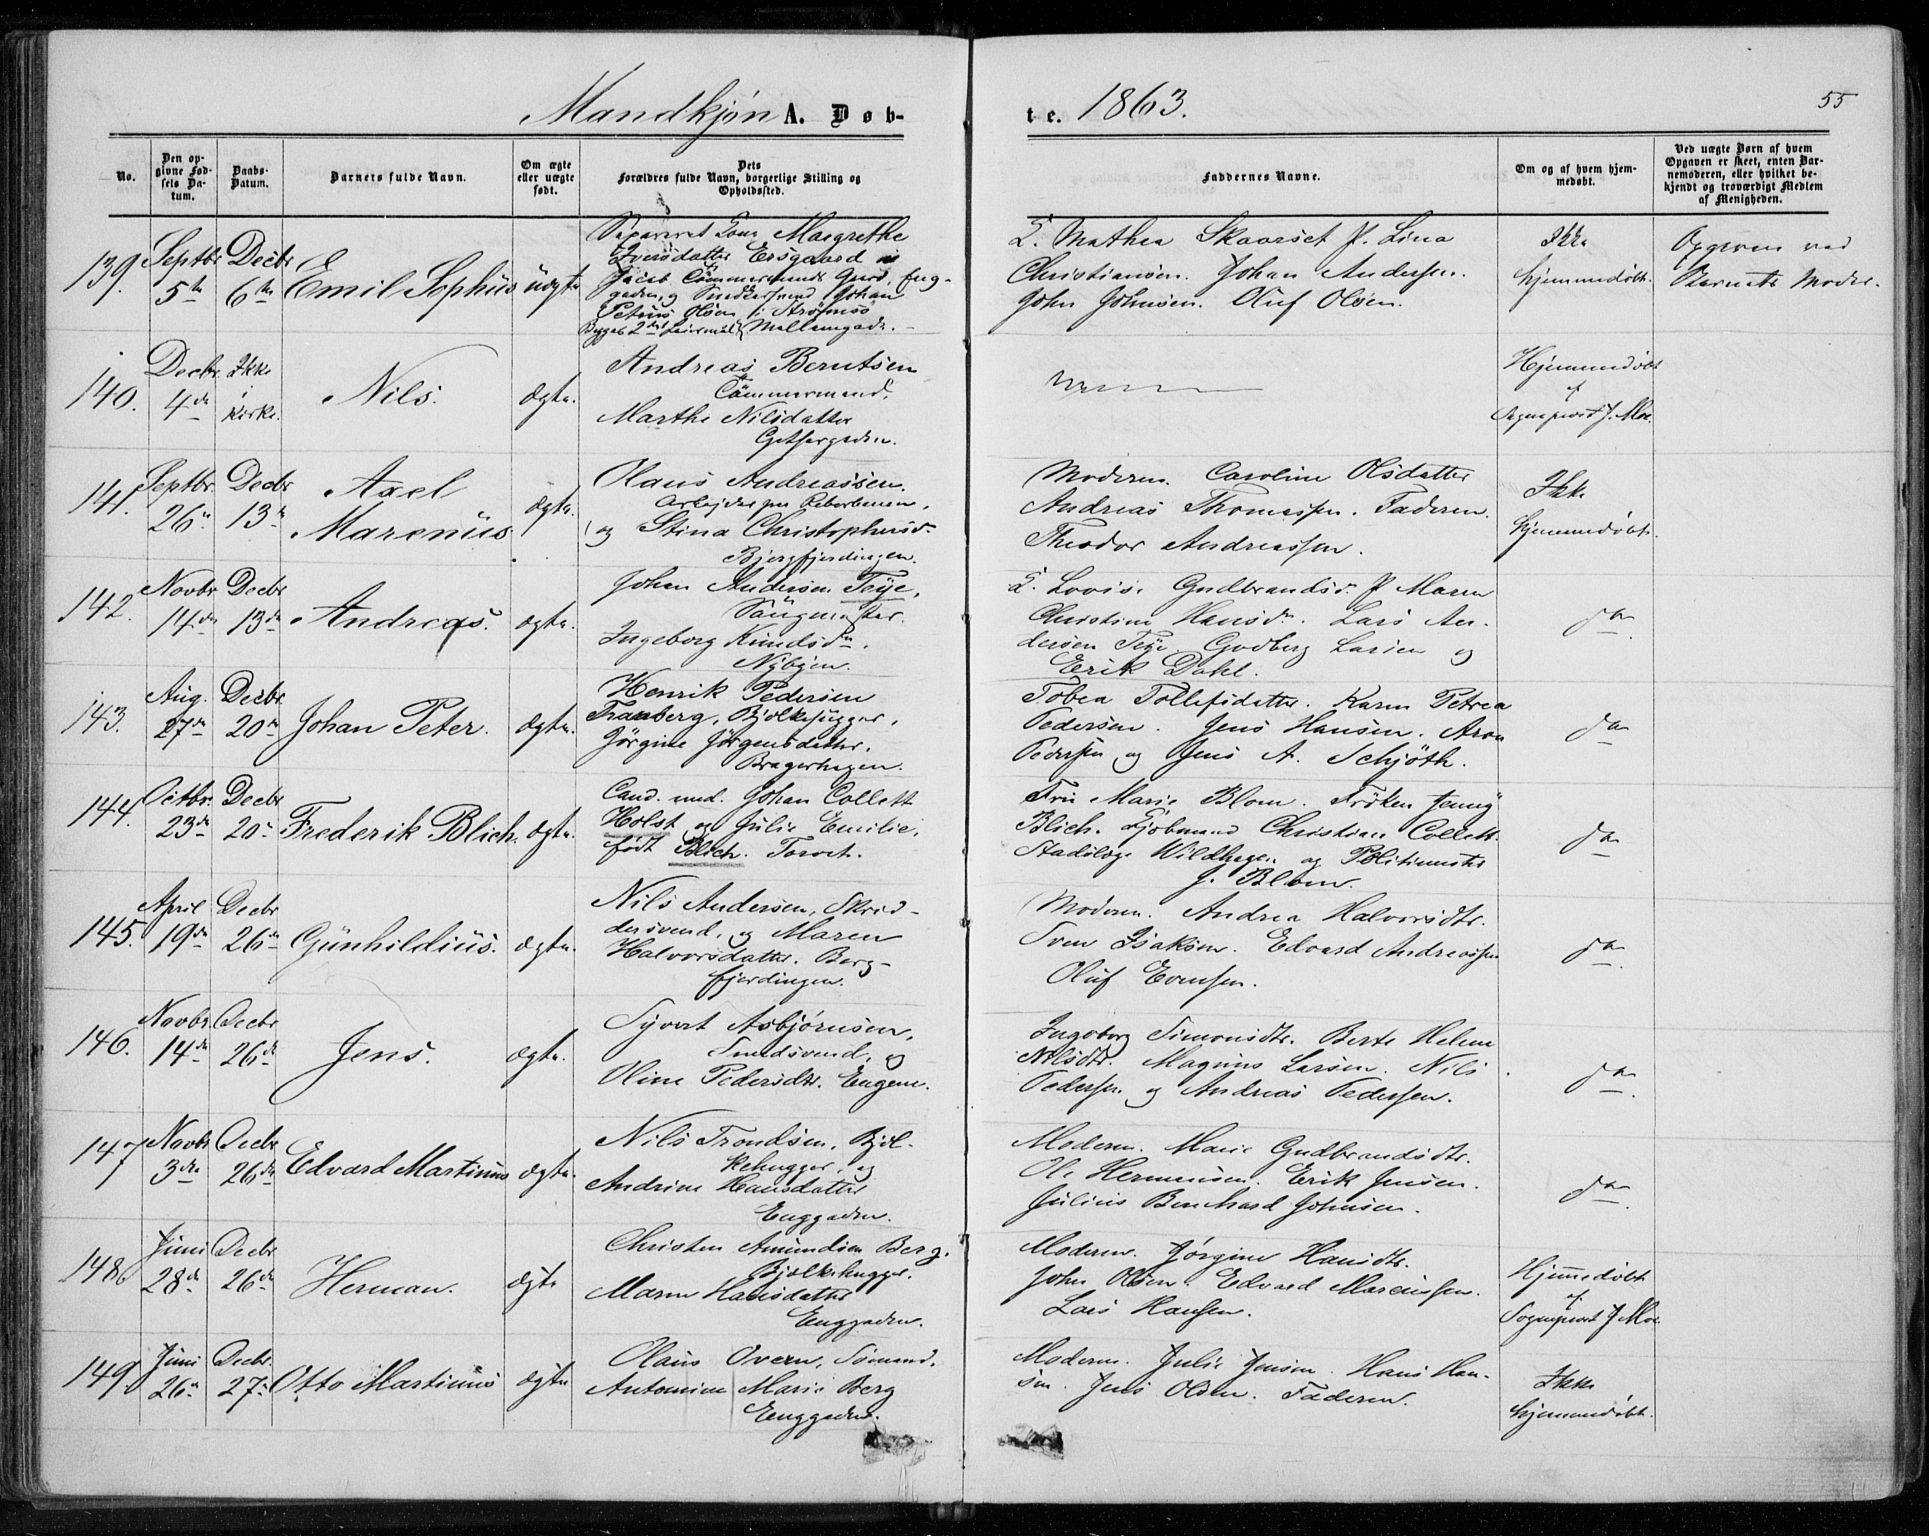 Mandkjøn A. Døb-
te. 1863.
55
No.
Den opgivne Fødsels Datum.
Daabs-Datum.
Barnets fulde Navn.
Om ægte eller uægte født.
Dets Forældres fulde Navn, borgerlige Stilling og Opholdssted.
Faddernes Navne.
Om og af hvem hjemmedøbt.
Ved uægte Børn af hvem Opgaven er skeet, enten Barnemoderen, eller hvilket bekjendt og troværdigt Medlem af Menigheden.
139. Septbr 5te Decbr 6te Emil Sophus uægte
Margrethe
Iversdatter Ersgaard
Jacob Tömmermands Gaard, Eng-
gaden, og Smedsvend Johan
Petrus Olsen i Strømsø
Begges 2det Leiermål Mellemgade.
E. Mathea Skaarset P. Lina
Christiansen. Johan Andersen.
John Johnsen. Oluf Olsen.
Ikke
hjemmedøbt.
Opgiven ved
Barnets Moder.
140. Decbr 4de Ikke i Kirke. Nils. ægte.
Andreas Berntsen
Tömmermand,
Marthe Nilsdatter
Hjemmedøbt
af
Sognepræst J. Moe.
141. Septbr. 26de Decbr 13de Axel
Marenius ægte.
Olaus Andreassen.
Arbejder paa Reberbanen,
og Stina Christophersd.
Bjergfjerdingen.
Moderen. Caroline Olsdatter
Andreas Thomassen. Faderen.
Theodor Andreassen.
Ikke
hjemmedøbt.
142. Novbr 14de Decbr 13de Andreas. ægte.
Johan Andersen Teye,
Saugmester.
Ingeborg Knudsdr.
Nybyen.
E. Lovise Gudbrandsdr P. Maren
Christine Hansdr. Lars An-
dersen Teye Gudberg Larsen og
Erik Dahl.
do
143. Aug. 27de Decbr. 20de Johan Peter. ægte.
Henrik Pedersen
Tranberg, Bjelkehugger,
Jörgine Jörgensdatter.
Bragerhagen.
Tobea Tollefsdatter. Karen Petrea
Pedersen. Jens Hansen. Aron
Pedersen og Jens A. Schjöth.
do
144. Octbr. 23de Decbr 20de Frederik Blich. ægte.
Cand. med. Johan Collett
Holst og Julie Emilie,
født Blich. Torvet.
Fru Marie Blom. Frøken Jenny
Blich. Kjöbmand Christian Collett.
Stadslæge Wildhagen og Politimester
J. Blom.
do
145. April 19de Decbr 26de Gunhildius. ægte.
Nils Andersen, Skræd-
dersvend, og Maren
Halvorsdatter. Berg-
fjerdingen.
Moderen. Andrea Halvorsdtr.
Sven Isaksen. Edvard Andreassen
Oluf Evensen.
do
146. Novbr. 14de Decbr 26de Jens. ægte.
Syvert Asbjørnsen,
Smedsvend, og
Oline Pedersdtr. Engene.
Ingeborg Simonsdtr. Berte Helene
Nilsdtr. Magnus Larsen. Nils
Pedersen og Andreas Pedersen.
do
147 Novbr 3die Decbr 26de Edvard Martinius ægte.
Nils Trondsen, Bjel-
kehugger, og
Andrine Hansdatter
Enggaden.
Moderen. Marie Gudbrandsdtr.
Ole Hermansen. Erik Jensen.
Julius Bernhard Johnsen.
do
148. Juni 28de Decbr 26de Herman. ægte
Christen Amundsen Berg,
Bjelkehugger.
Maren Hansdatter
Enggaden.
Moderen. Jörgine Hansdtr.
John Olsen. Edvard Marcussen.
Lars Hansen.
Hjemmedøbt
af
Sognepræst J Moe.
149. Juni 26de Decbr. 27de Otto Martinius ægte
Olaus Overn, Sömand.
Antonine Marie Berg
Enggaden.
Moderen. Julie Jensen. Hans Han-
sen. Jens Olsen. Faderen.
Ikke
hjemmedøbt.